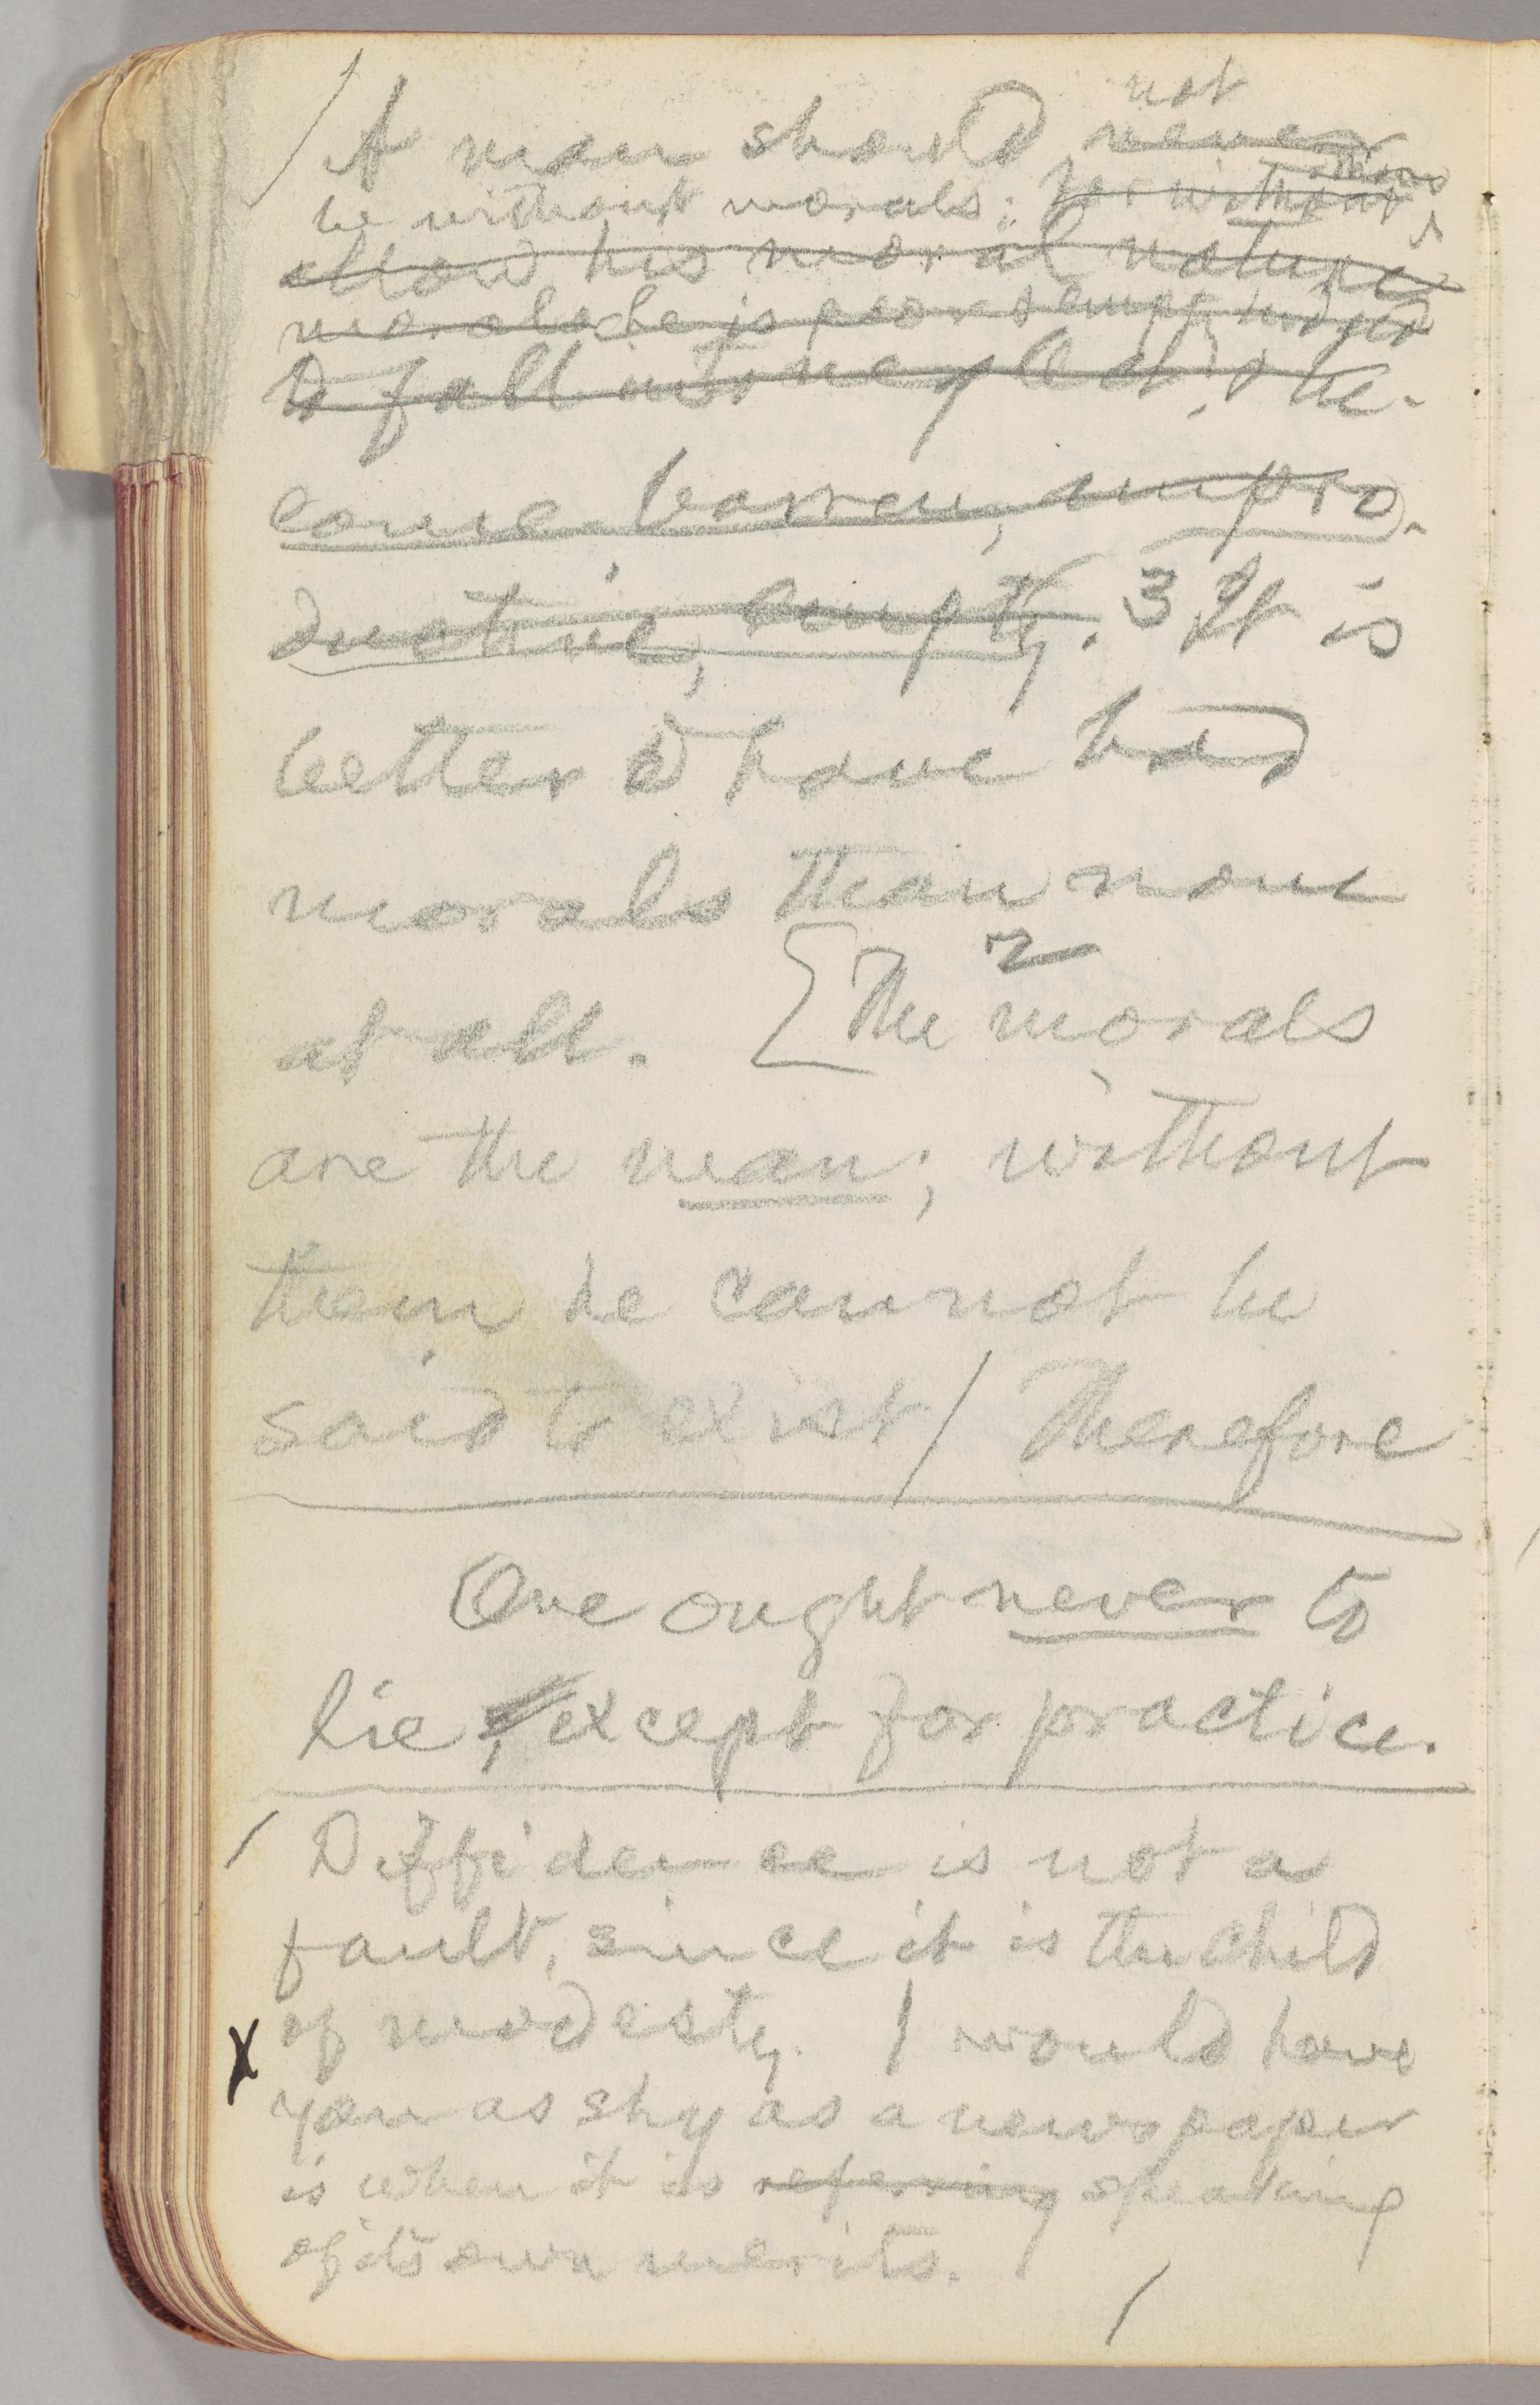 not
A man should never
be without morals; for without
allow his moral nature
morals he is poor & empty,
to fall into neglect, & be-
come barren, unpro-
ductive, empty. 3 It is
better to have bad
morals than none
at all. [The 2 morals
are the man; without
them he cannot be
said to exist / Therefore
One ought never to
lie, except for practice.
/ Diffidence is not a
fault, since it is the child
of modesty. I would have
X
you as shy as a newspaper
is when it is referring speaking
of its own merits.
/